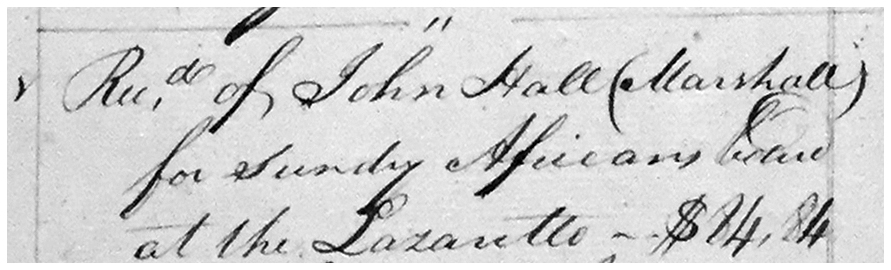 Rec,d of John Hall (Marshall)
for Sundry Africans board
at the Lazaretto - $84,84